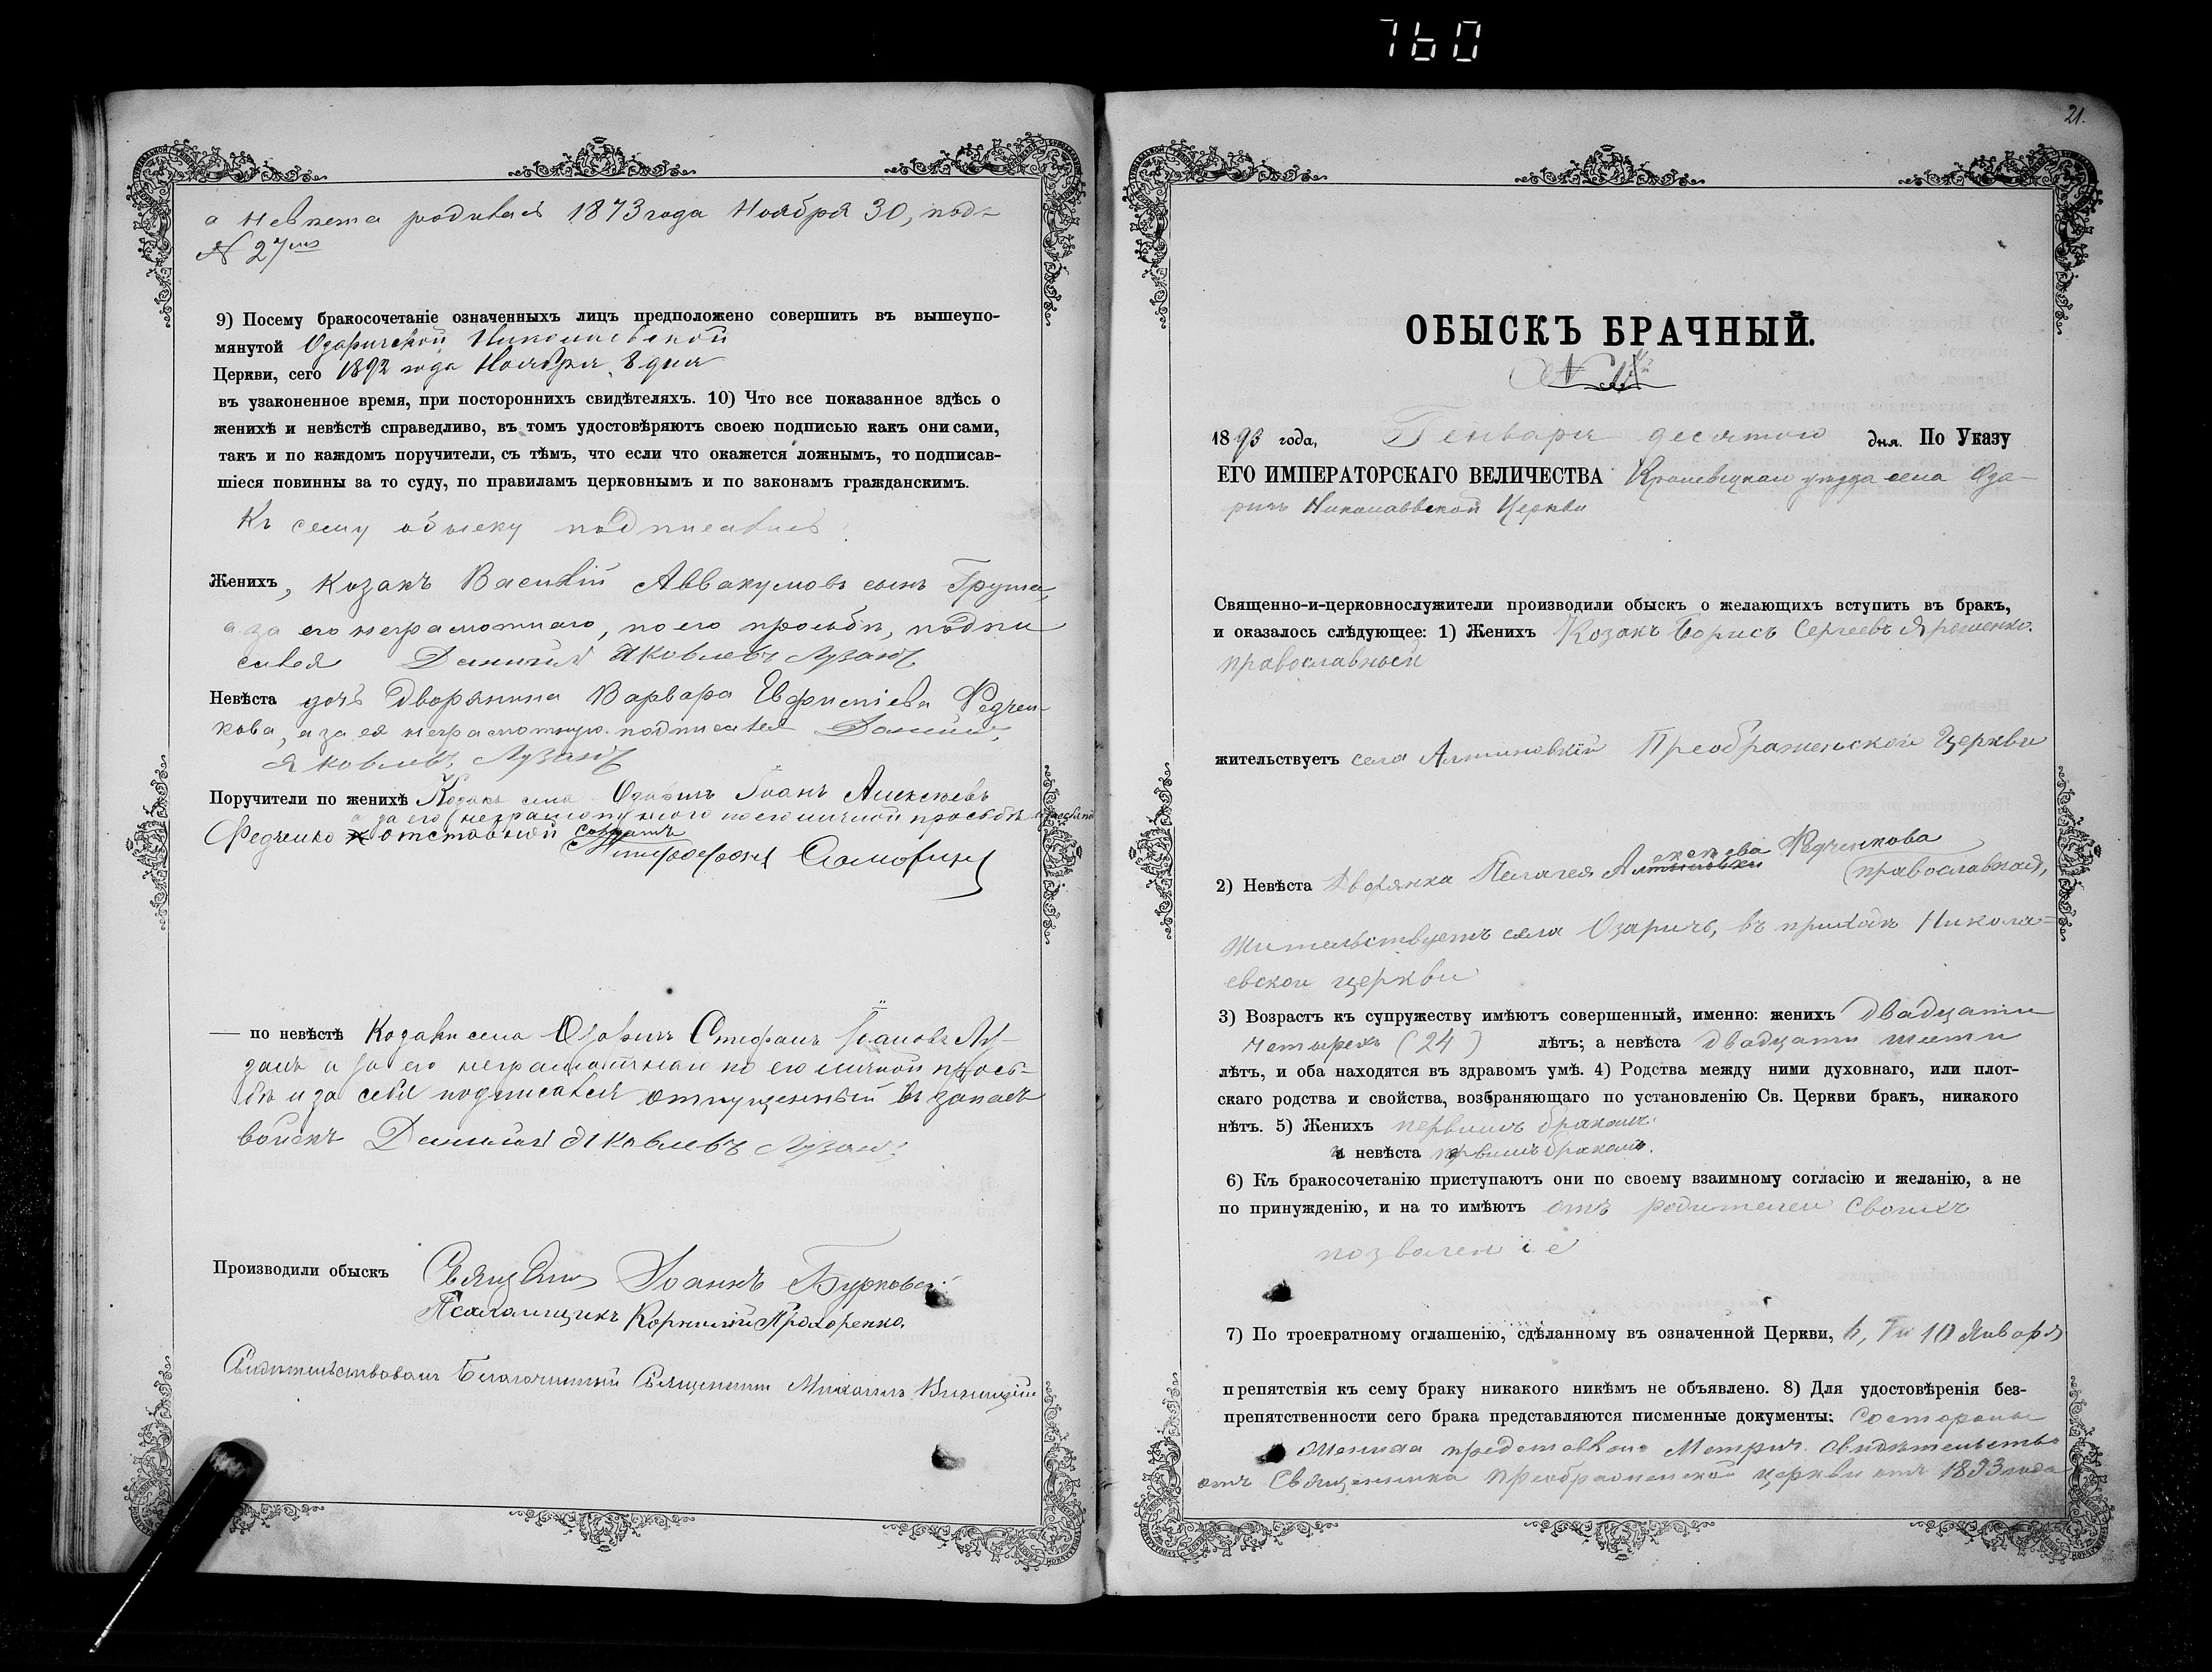 760
а невѣста родилась 1873 года Ноября 30, подъ
№ 27мъ
9) Посему бракосочетаніе означенныхъ лицъ предположено совершить въ вышеупо-
мянутой Озаричской Николаевской
Церкви, сего 1892 года Ноября 8 дня
въ узаконенное время, при постороннихъ свидѣтеляхъ. 10) Что все показанное здѣсь о
женихѣ и невѣстѣ справедливо, въ томъ удостовѣряютъ своею подписью какъ они сами,
такъ и по каждомъ поручители, съ тѣмъ, что если что окажется ложнымъ, то подписав-
шіеся повинны за то суду, по правиламъ церковнымъ и по законамъ гражданскимъ.
Къ сему обыску подписались:
Женихъ, козакъ Василій Аввакумовъ сынъ
а за его неграмотнаго, по его просьбѣ, подпи
сался Даніилъ Яковлевъ Лузанъ
Невѣста дочь Дворянина Варвара Федчен-
кова, а за ея неграмотную подписался Даніилъ
Яковлевъ Лузанъ
Поручители по женихѣ Козакъ села Озаричъ Іоанъ Алексѣевъ
а за его неграмотного по его личной просьбѣ
Федченко отставной солдатъ
— по невѣстѣ Козаки села Озаричъ Стефанъ Іоановъ Лу-
занъ а за его неграмотнаго по его личной прось-
бѣ и за себя подписался отпущенный въ запасъ
войскъ Даніилъ Яковлевъ Лузанъ
Производили обыскъ Священникъ Іоаннъ Бурковскій
Псаломщикъ Корнилій Прохоренко.
Свидѣтельствовалъ Благочинный Священникъ Михаилъ
21.
ОБЫСКЪ БРАЧНЫЙ.
№
1893 года, Генваря десятого дня. По Указу
ЕГО ИМПЕРАТОРСКАГО ВЕЛИЧЕСТВА Кролевецкаго уѣзда села Оза-
ричъ Николаевской Церкви
Священно-и-церковнослужители производили обыскъ о желающихъ вступить въ бракъ,
и оказалось слѣдующее: 1) Женихъ Козакъ Борисъ Сергеевъ
православный
жительствуетъ села Алтыновкій Преображенской Церкви
ексѣева Федченкова
2) Невѣста Дворянка Пелагея Алтыновки (православная,
жительствуетъ села Озаричъ, въ приходѣ Никола-
евской церкви
3) Возрастъ къ супружеству имѣютъ совершенный, именно: женихъ двадцати
четырехъ (24) лѣтъ; а невѣста двадцати шести
лѣтъ, и оба находятся въ здравомъ умѣ. 4) Родства между ними духовнаго, или плот-
скаго родства и свойства, возбраняющаго по установленію Св. Церкви бракъ, никакого
нѣтъ. 5) Женихъ первымъ бракомъ.
и невѣста первымъ бракомъ.
6) Къ бракосочетанію приступаютъ они по своему взаимному согласію и желанію, а не
по принужденію, и на то имѣютъ отъ родителей своихъ
позволеніе
7) По троекратному оглашенію, сдѣланному въ означенной Церкви, 6, 10 Января
препятствія къ сему браку никакого никѣмъ не объявлено. 8) Для удостовѣренія без-
препятственности сего брака представляются писменные документы: со стороны
жениха представлено Метрич. свидѣтельство
отъ Священника Преображенской церкви отъ 1893 года